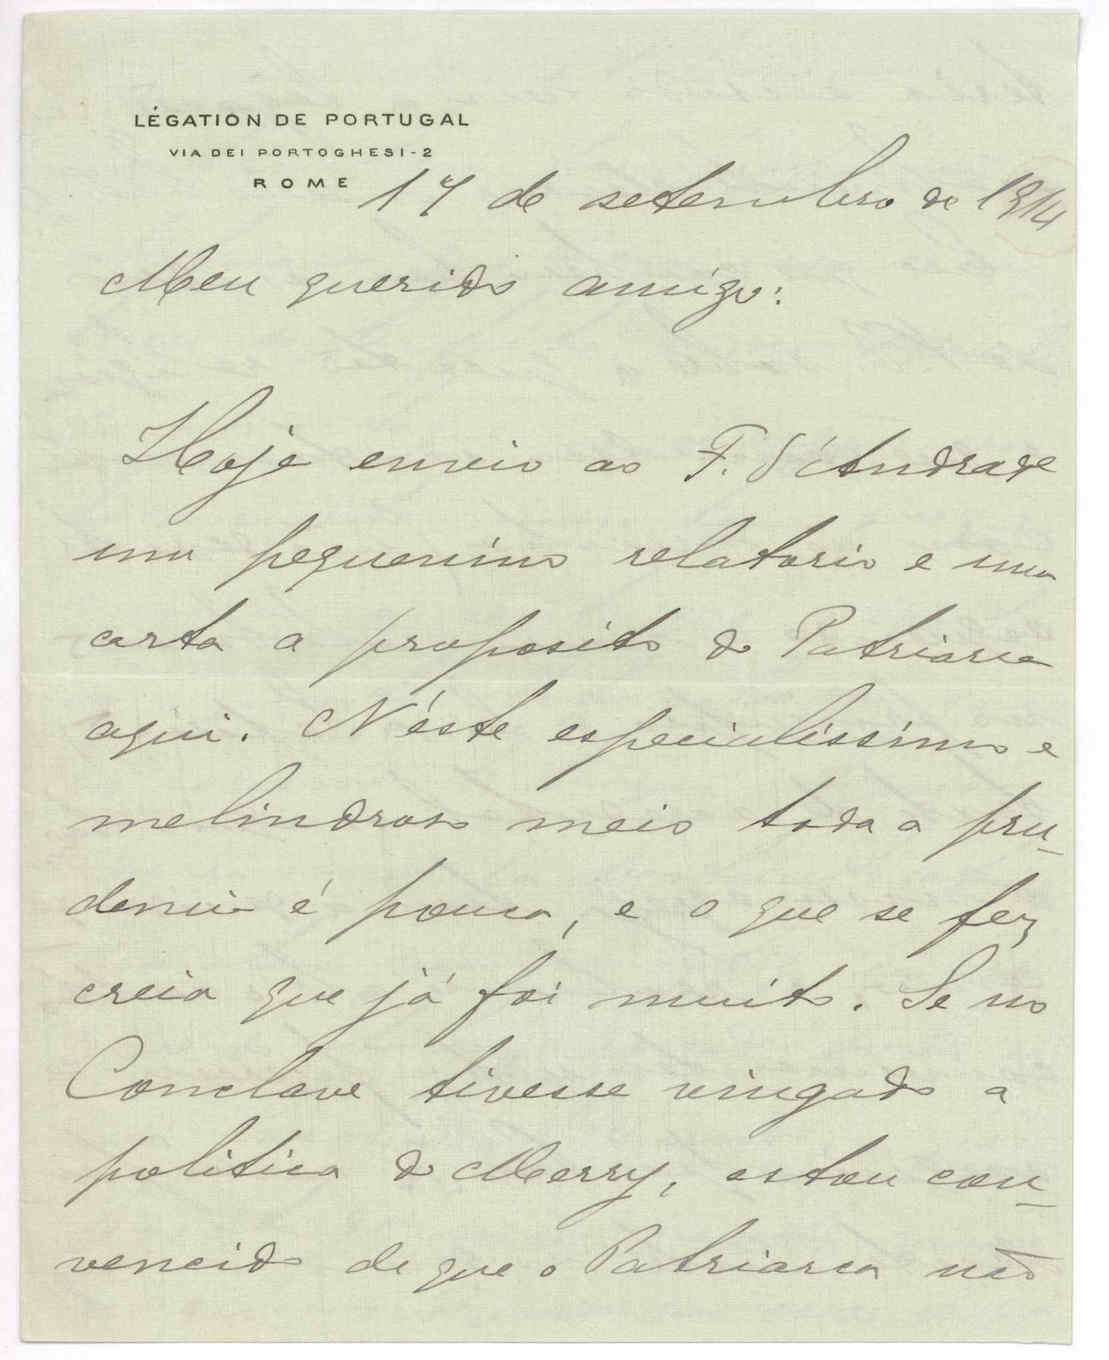 LÉGATION DE PORTUGAL
VIA DEI PORTOGHESI-2
ROME
17 de setembro de 1914
Meu querido amigo:
Hoje envio ao F. d'Andrade
um pequenino relatorio e uma
carta a proposito do Patriarca
aqui. N'éste especialissimo e
melindroso meio toda a pru-
dencia é pouca, e o que se fez
creia que já foi muito. Se no
Conclave tivesse vingado a
politica do Merry, estou con-
vencido de que o Patriarca não